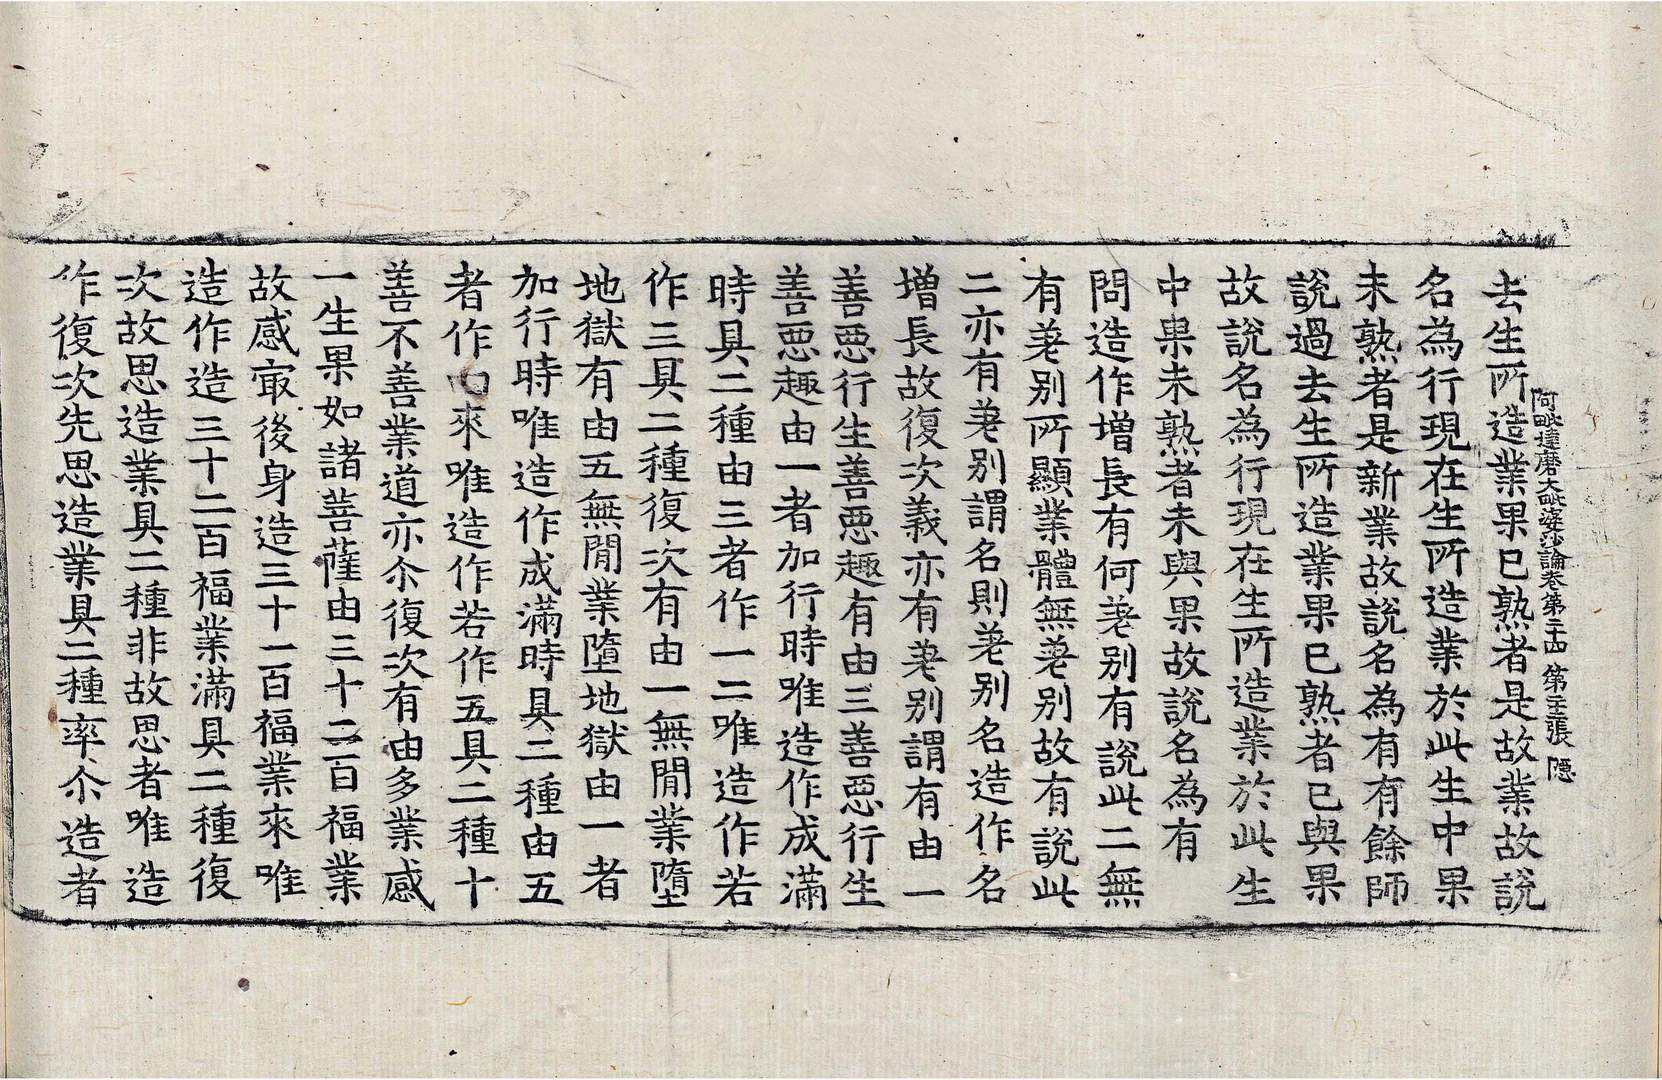 阿毗達磨大毗婆沙論卷第二十四 第 張 隱
去生所造業果已熟者是故業故說
名為行現在生所造業於此生中果
未熟者是新業故說名為有有餘師
說過去生所造業果已熟者已與果
故說名為行現在生所造業於此生
中果未熟者未與果故說名為有
問造作增長有何差別有說此二無
有差別所顯業體無差別故有說此
二亦有差別謂名則差別名造作名
增長故復次義亦有差別謂有由一
善惡行生善惡趣有由三善惡行生
善惡趣由一者加行時唯造作成滿
時具二種由三者作一二唯造作若
作三具二種復次有由一無閒業墮
地獄有由五無閒業墮地獄由一者
加行時唯造作成滿時具二種由五
者作四來唯造作若作五具二種十
善不善業道亦尒復次有由多業感
一生果如諸菩薩由三十二百福業
故感㝡後身造三十一百福業來唯
造作造三十二百福業滿具二種復
次故思造業具二種非故思者唯造
作復次先思造業具二種率尒造者